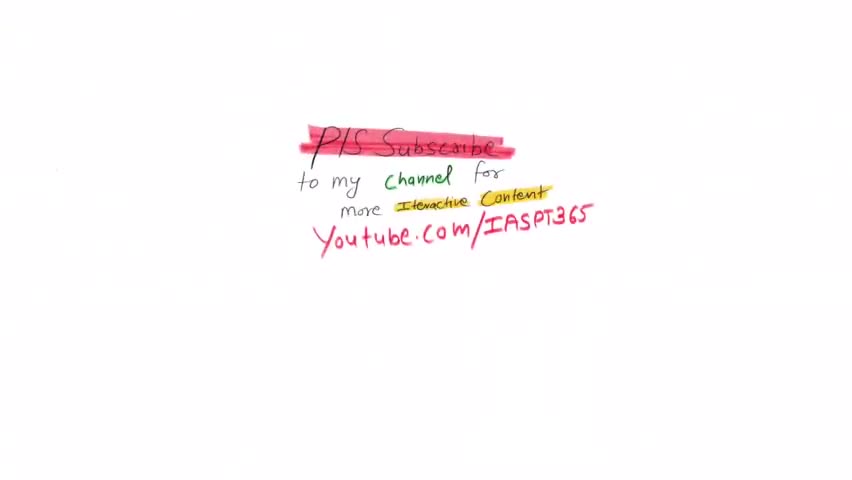 Pls Subscribe
to my channel for
more Iteractive Content
Youtube.com/IASPT365